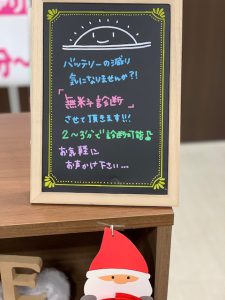 バッテリーの減り
気になりませんか?!
「無料診断」
させて頂きます!!!
2～3分で診断可能♪
お気軽に
お声かけ下さい...
分～
E